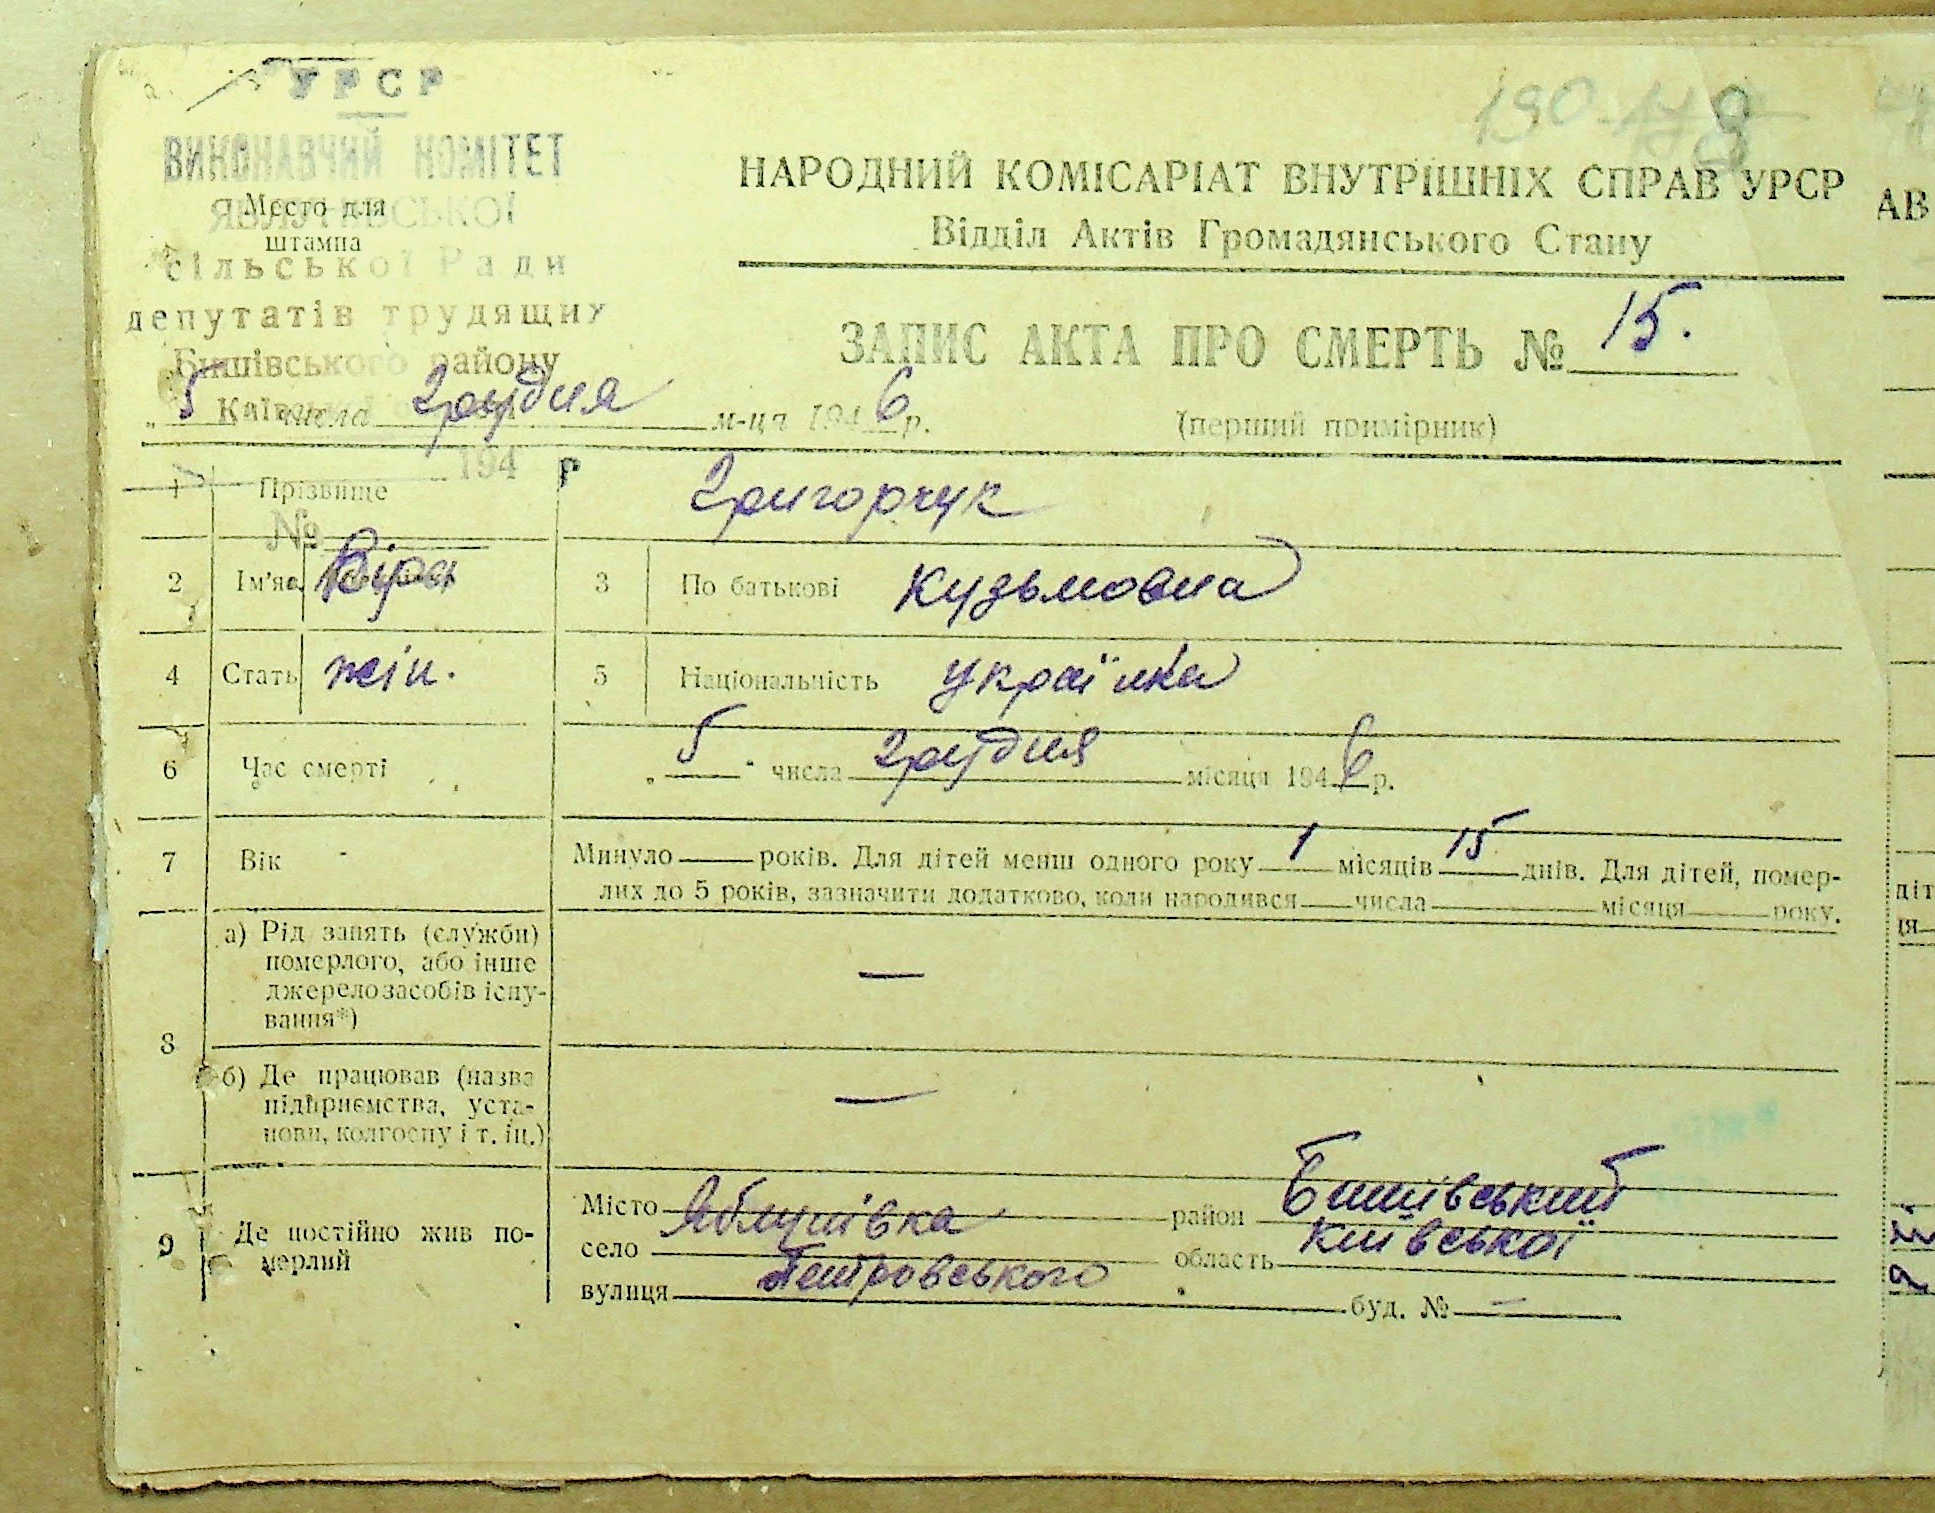 УРСР
ВИКОНАВЧИЙ КОМІТЕТ
Место для
штампа
сільської Ради
депутатів трудящих
Бишівського району
190
НАРОДНИЙ КОМІСАРІАТ ВНУТРІШНІХ СПРАВ УРСР
Відділ Актів Громадянського Стану
ЗАПИС АКТА ПРО СМЕРТЬ № 15.
"5 числа Грудня м-ця 1946 р.
(перший примірник)
194 р
№
1 Прізвище Григорчук
2 Ім'я Віра 3 По батькові Кузьмовна
4 Стать жін. 5 Національність українка
6 Час смерті "5" числа грудня місяця 1946 р.
7 Вік Минуло років. Для дітей менш одного року 1 місяців 15 днів. Для дітей, помер-
лих до 5 років, зазначити додатково, коли народився числа місяця року.
8 а) Рід занять (служби)
померлого, або інше
джерело засобів існу-
вання*) —
б) Де працював (назва
підприємства, уста-
нови, колгоспу і т. ін.) —
9 Де постійно жив по-
мерлий
Місто Яблунівка район Бишівський
село область Київської
вулиця Петровського буд. № —
АВ